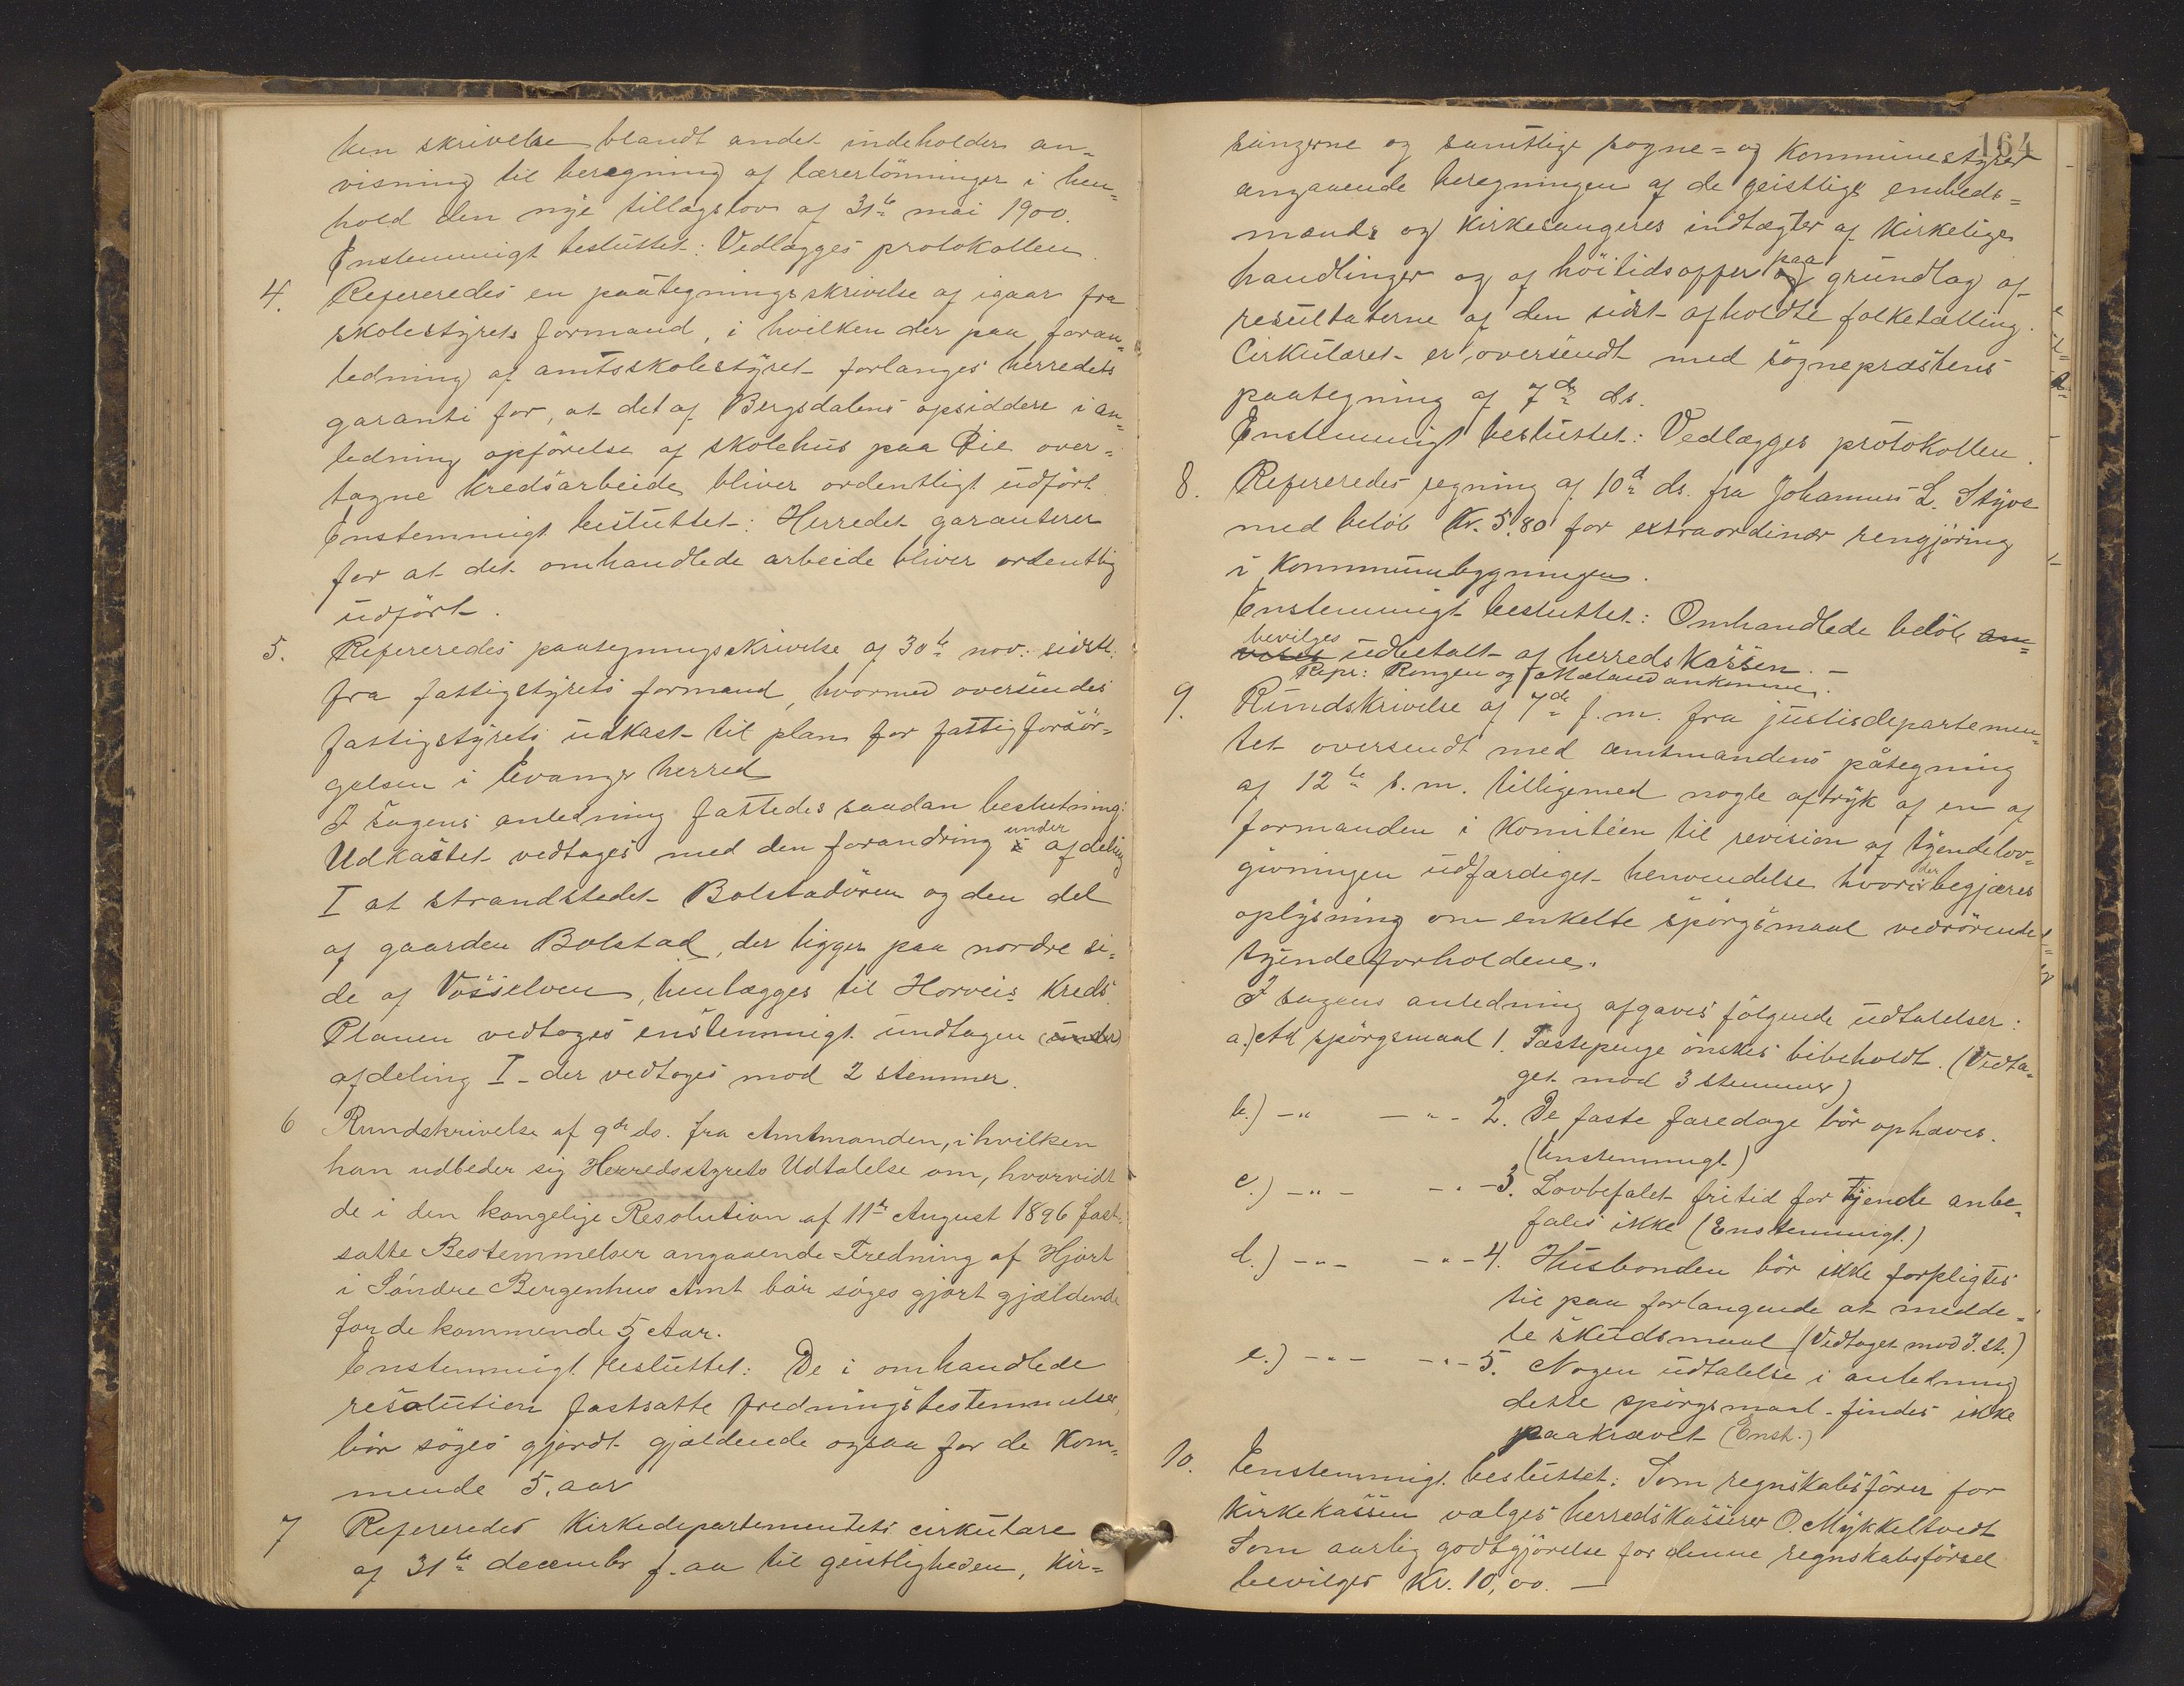 ken skrivelse blandt andet indeholder an-
visning til beregning af lærerlönninger i hen-
hold den nye tillægslov af 31te mai 1900.
Enstemmigt besluttet: Vedlægges protokollen.
4. Refereredes en paategningsskrivelse af igaar fra
skolestyrets formand, i hvilken der paa foran-
ledning af amtsskolestyret forlanges herredets
garanti for, at det af Bergsdalens opsiddere i an-
ledning opförelse af skolehus paa Lie over-
tagne kredsarbeide bliver ordentligt udfört
Enstemmigt besluttet: Herredet garanterer
for at det omhandlede arbeide bliver ordentlig
udfört.
5. Refereredes paategningsskrivelse af 30te nov. sidstl.
fra fattigstyrets formand, hvormed oversendes
fattigstyrets udkast til plan for fattigforsör-
gelsen i Evanger herred
I sagens anledning fattedes saadan beslutning:
Udkastet vedtages med den forandring i under afdeling
I at strandstedet Bolstadören og den del
af gaarden Bolstad, der ligger paa nordre si-
de af Vosselven, henlægges til Horveis kreds.
Planen vedtoges enstemmigt undtagen (under)
afdeling I - der vedtoges mod 2 stemmer.
6 Rundskrivelse af 9de ds. fra Amtmanden, i hvilken
han udbeder sig Herredsstyrets Udtalelse om, hvorvidt
de i den kongelige Resolution af 11te August 1896 fast-
satte Bestemmelser angaaende Fredning af Hjort
i Söndre Bergenhus Amt bör söges gjort gjældende
for de kommende 5 Aar.
Enstemmigt besluttet: De i omhandlede
resolution fastsatte fredningsbestemmelser,
bör söges gjordt gjældende ogsaa for de kom-
mende 5. aar
7 Refereredes Kirkedepartementets cirkulære
af 31te december f. aa til geistligheden, kir-
164
sangerne og samtlige sogne- og kommunestyrer
angaaende beregningen af de geistlige embeds-
mænds og kirkesangeres indtægter af kirkelige
handlinger og af höitidsoffer og paa grundlag af
resultaterne af den sidst afholdte folketælling.
Cirkulæret er oversendt med sognepræstens
paategning af 7de ds.
Enstemmigt besluttet: Vedlægges protokollen.
8. Refereredes regning af 10de ds. fra Johannes L. Styve
med belöb Kr. 5,80 for extraordinær rengjöring
i Kommunebygningen.
Enstemmigt besluttet: Omhandlede belöb an-
vises bevilges udbetalt af herredskassen. -
Repr: Rongen og Mæland ankommer.
9. Rundskrivelse af 7de f. m. fra justisdepartemen-
tet oversendt med amtmandens påtegning
af 12te s. m. tilligemed nogle aftryk af en af
formanden i Komitéen til revision af tyendelov-
givningen udfærdiget henvendelse hvori der begjæres
oplysning om enkelte spörgsmaal vedrörende
tyendeforholdene.
I sagens anledning afgaves fölgende udtalelser:
a.) Ad spörgsmaal 1. Fæstepenge önskes bibeholdt. (Vedta-
get mod 3 stemmer)
b.) -"- -"- 2. De faste faredage bör ophæves.
(Enstemmigt)
c.) -"- -"- 3. Lovbefalet fritid for tjende anbe-
fales ikke (Enstemmigt.)
d.) -"- -"- 4. Husbonden bör ikke forpligtes
til paa forlangende at medde-
le skudsmaal (Vedtaget mod 3. st.)
e.) -"- -"- 5. Nogen udtalelse i anledning
dette spörgsmaal findes ikke
paakrævet (Enst.)
10. Enstemmigt besluttet: Som regnskabsförer for
kirkekassen vælges herredskasserer O. Mykkeltvedt
Som aarlig godtgjörelse for denne regnskabsförsel
bevilges Kr. 10,00. -